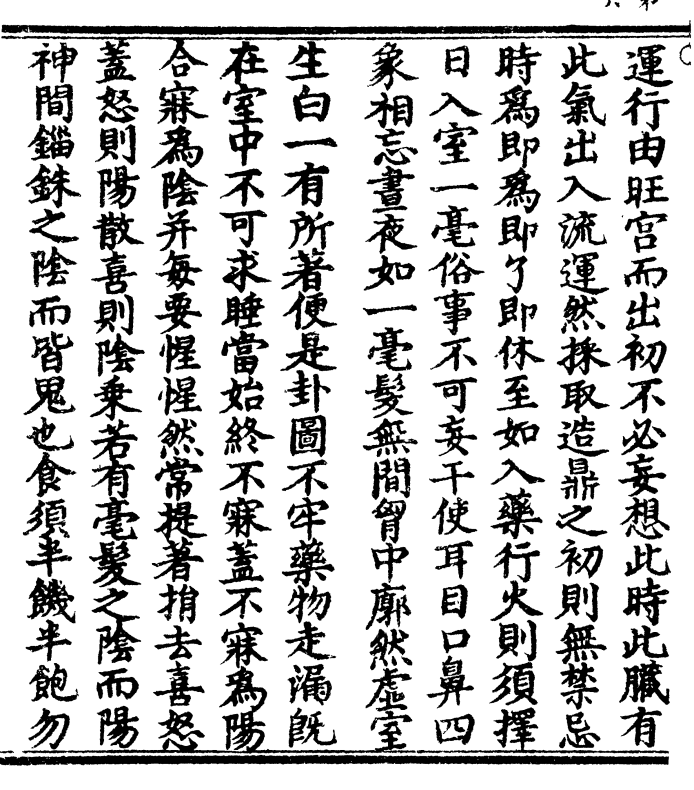 運行由旺宮而出初不必妄想此時此臟有
此氣出入流運然採取造鼎之初則無禁忌
時為即為即了即休至如入藥行火則須擇
日入室一毫俗事不可妄干使耳目口鼻四
象相忘晝夜如一毫髮無間胷中廓然虛室
生白一有所著便是卦圖不牢藥物走漏旣
在室中不可求睡當始終不寐蓋不寐為陽
合寐為陰并每要惺惺然常提著揹去喜怒
蓋怒則陽散喜則陰乘若有毫髮之陰而陽
神間錙銖之陰而皆鬼也食須半饑半飽勿